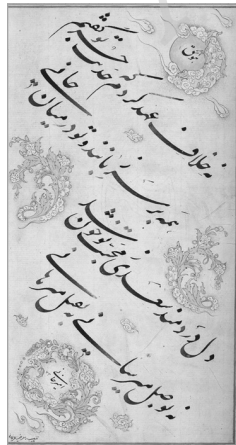 نه خلاف عهد کردم که حدیث جز تو گفتم
همه بر سر زبانند و تو در میان جانی
دل دردمند سعدی ز محبت تو خون شد
نه بوصل میرسانی نه بقتل میرهانی